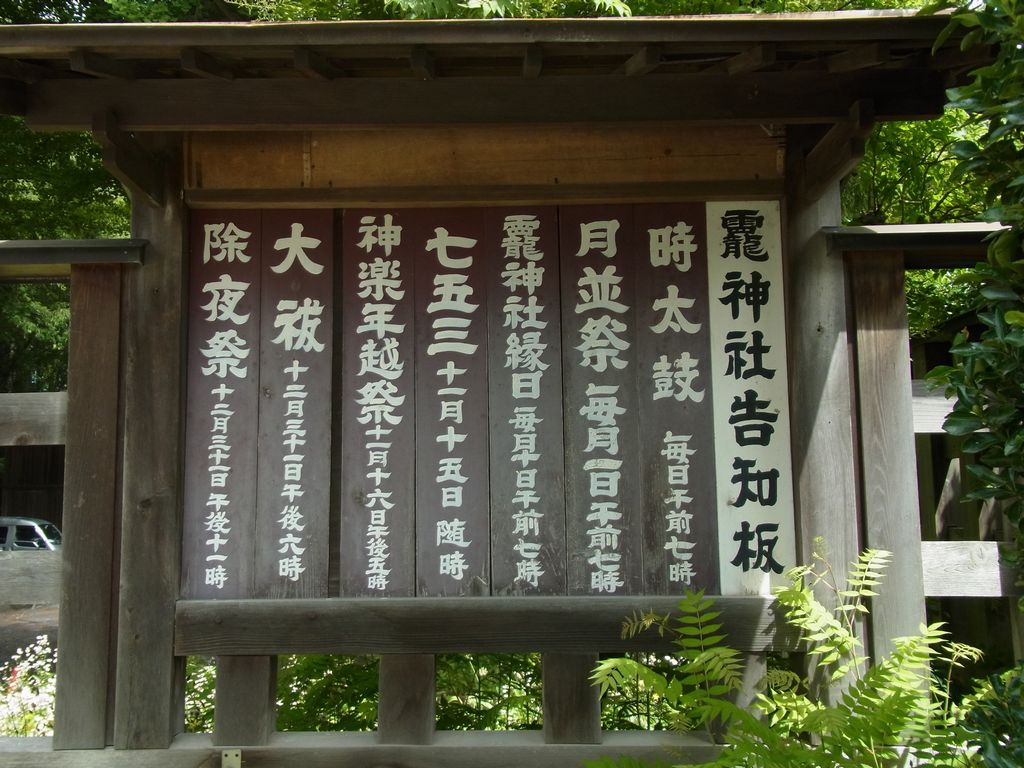 靇神社告知板
時太鼓 毎日午前七時
月並祭 毎月一日午前七時
靇神社縁日 毎月十日午前七時
七五三 十一月十五日 随時
神楽年越祭 十二月十六日午後五時
大祓 十二月三十一日午後六時
除夜祭 十二月三十一日午後十一時